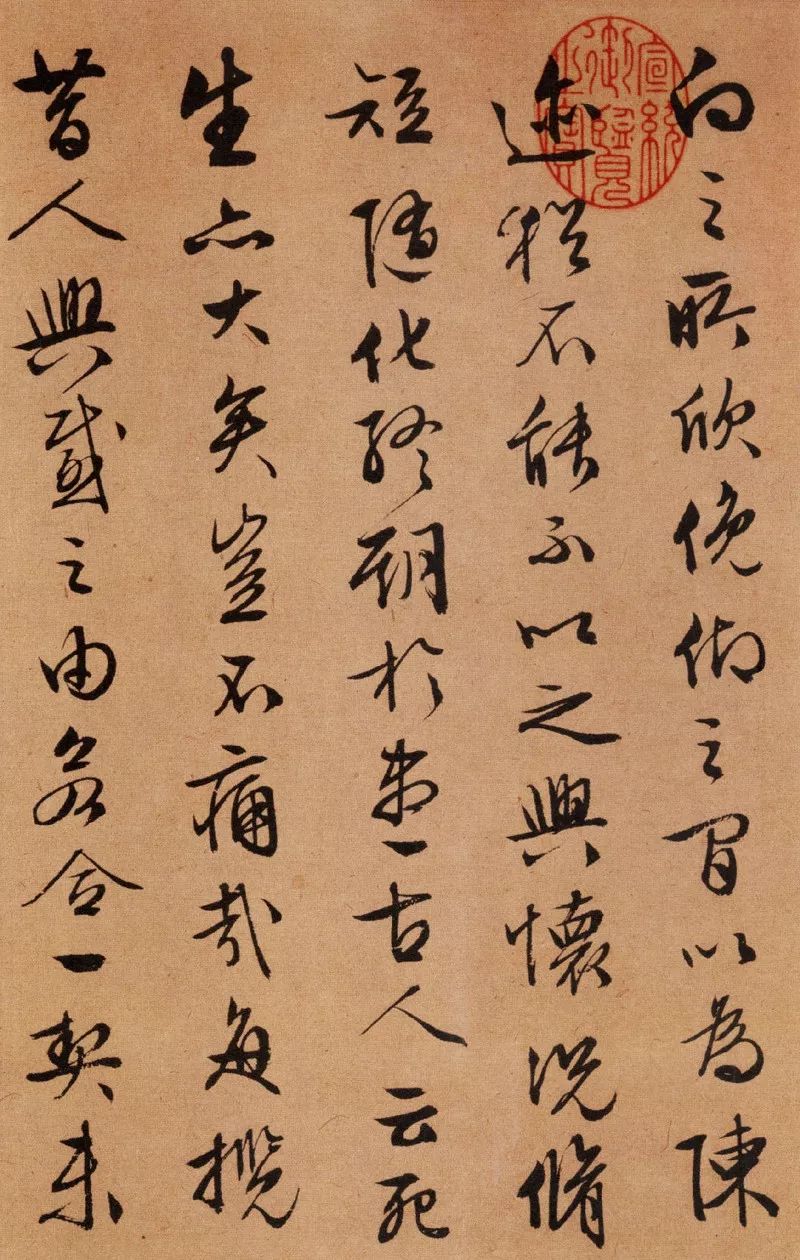 向之所欣俛仰之間以為陳
迹猶不能不以之興懷況脩
短隨化終期於盡古人云死
生亦大矣豈不痛哉每攬
昔人興感之由若合一契未
宣統
御覽
之寶